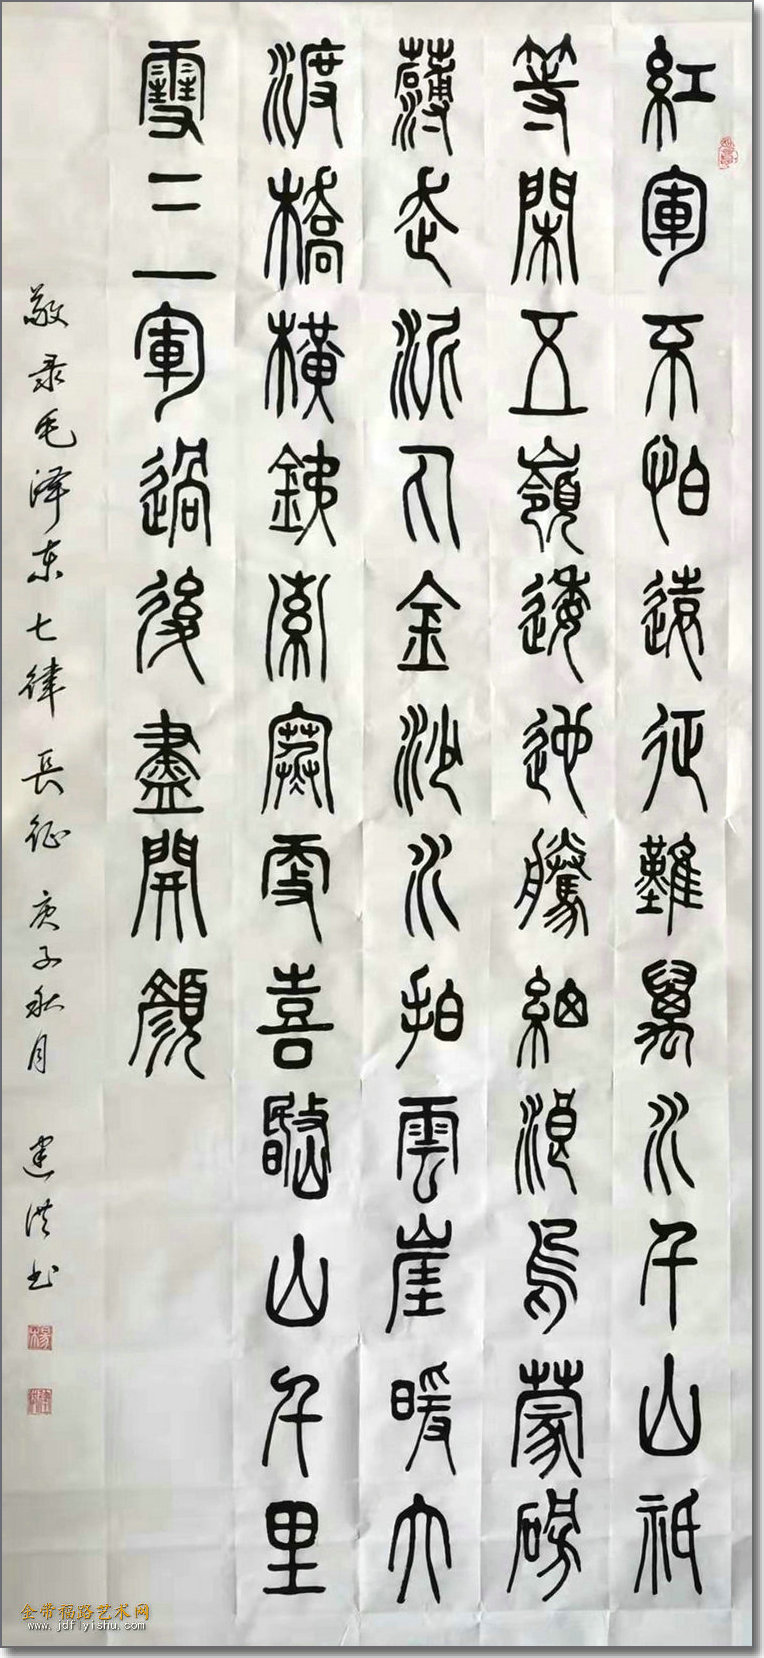 紅軍不怕遠征難萬水千山祇
等閑五嶺逶迤騰細浪烏蒙磅
薄走泥丸金沙水拍雲崖暖大
渡橋橫銕索寒更喜岷山千里
雪三軍過後盡開顏
敬录毛泽东七律長征 庚子秋月 建洪书
金带福路艺术网
www.jdflyishu.com